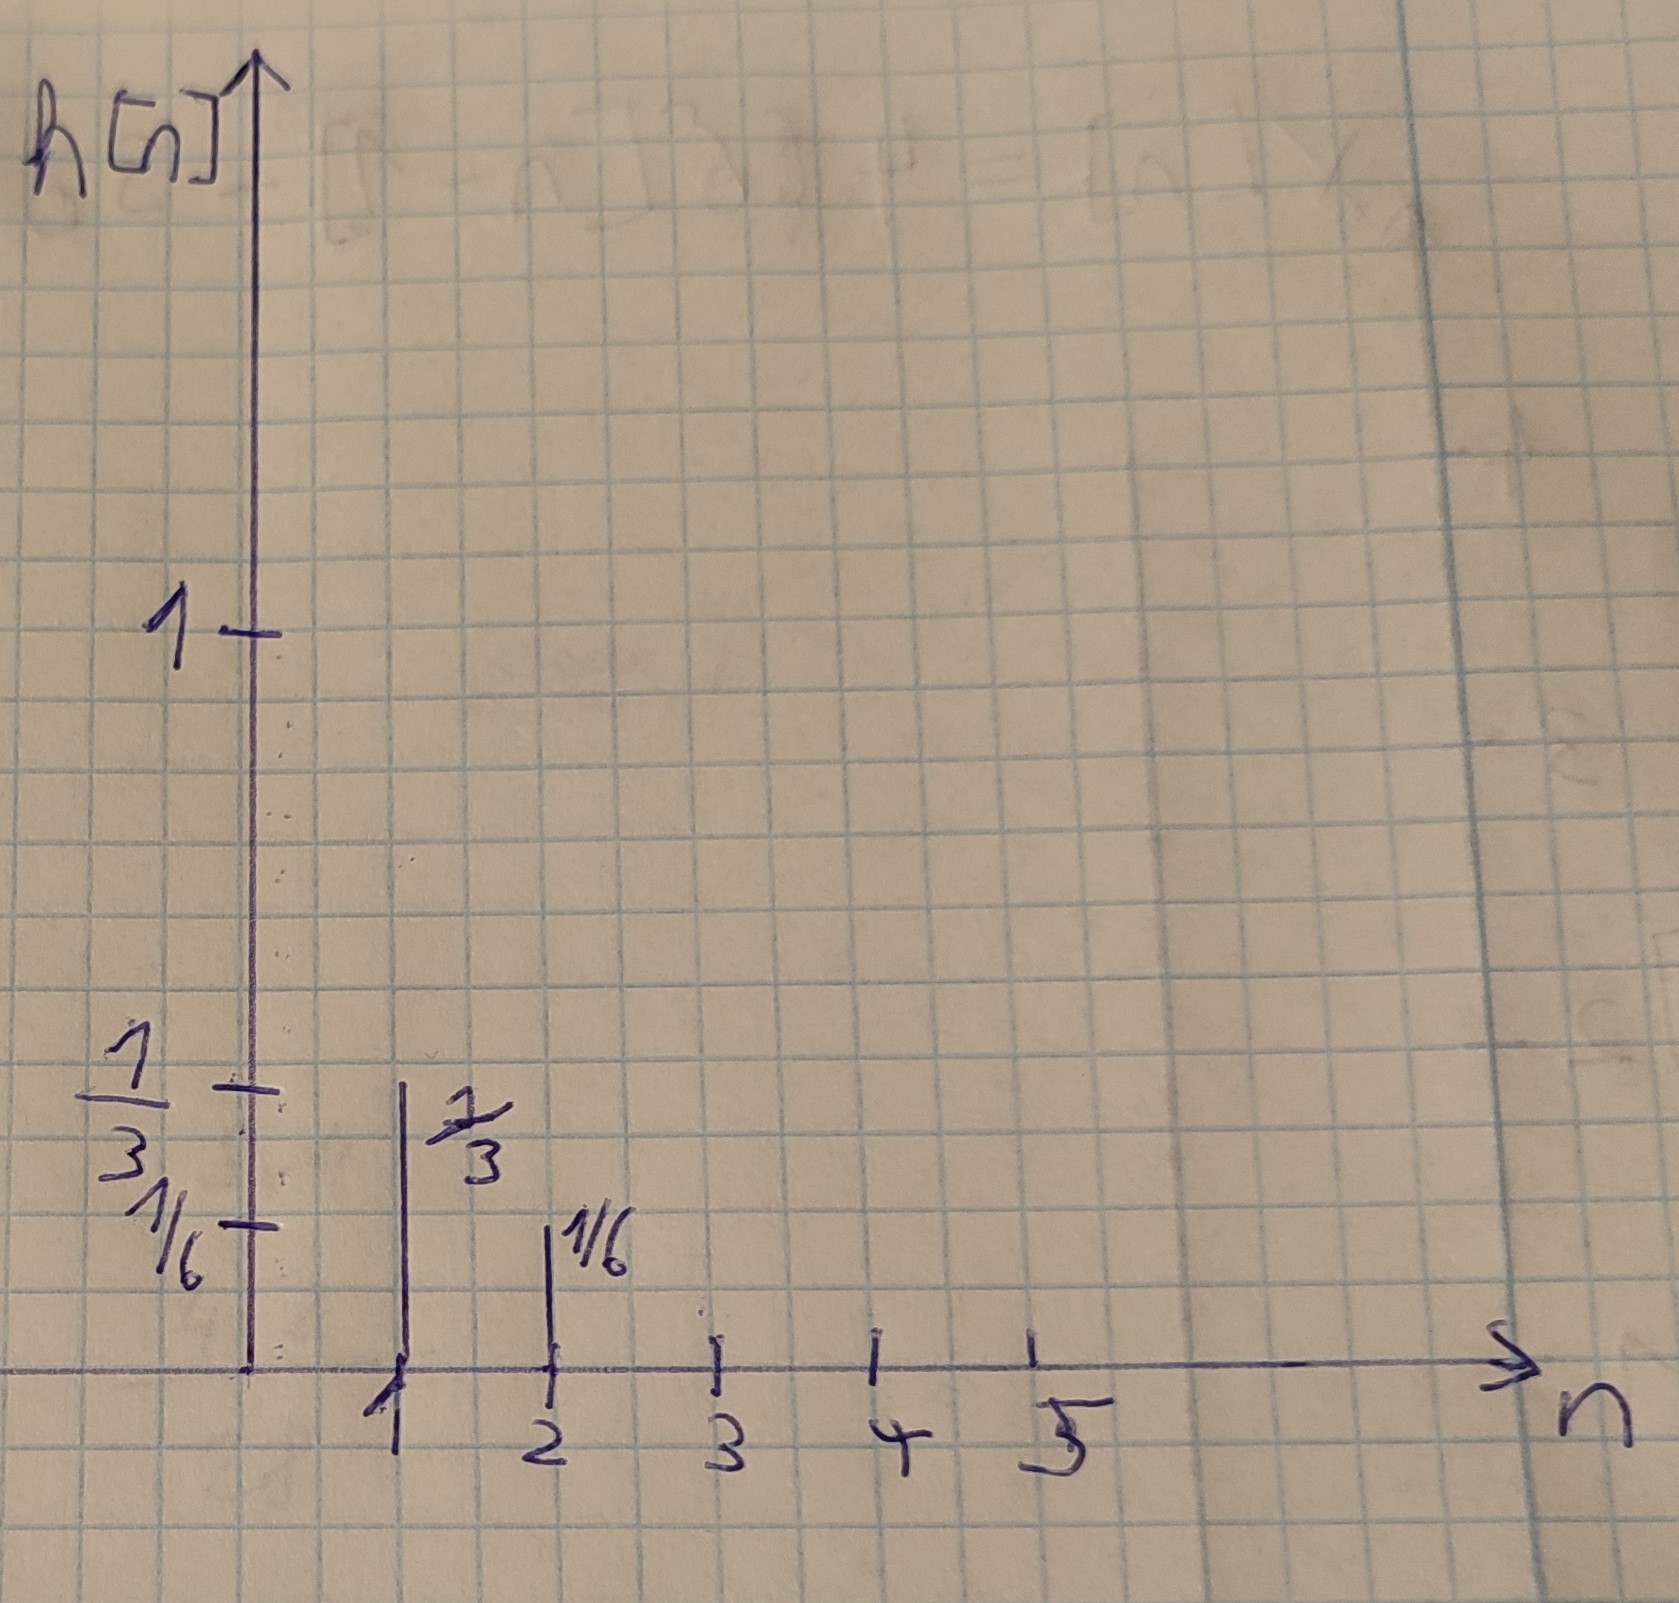 h[n]
1
1/3
1/3
1/6
1/6
1 2 3 4 5
n